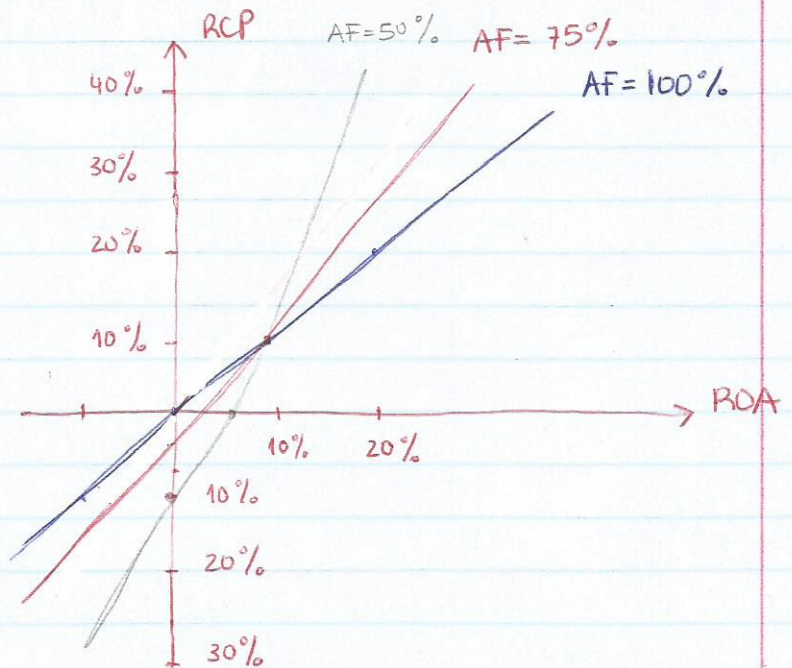 RCP
AF=50%
AF= 75%
AF=100%
40%
30%
20%
10%
ROA
10%
20%
10%
20%
30%